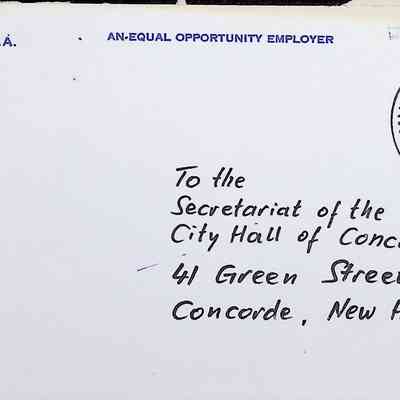 .A.
AN EQUAL OPPORTUNITY EMPLOYER
To the
Secretariat of the
City Hall of Conc
41 Green Stree
Concorde, New H